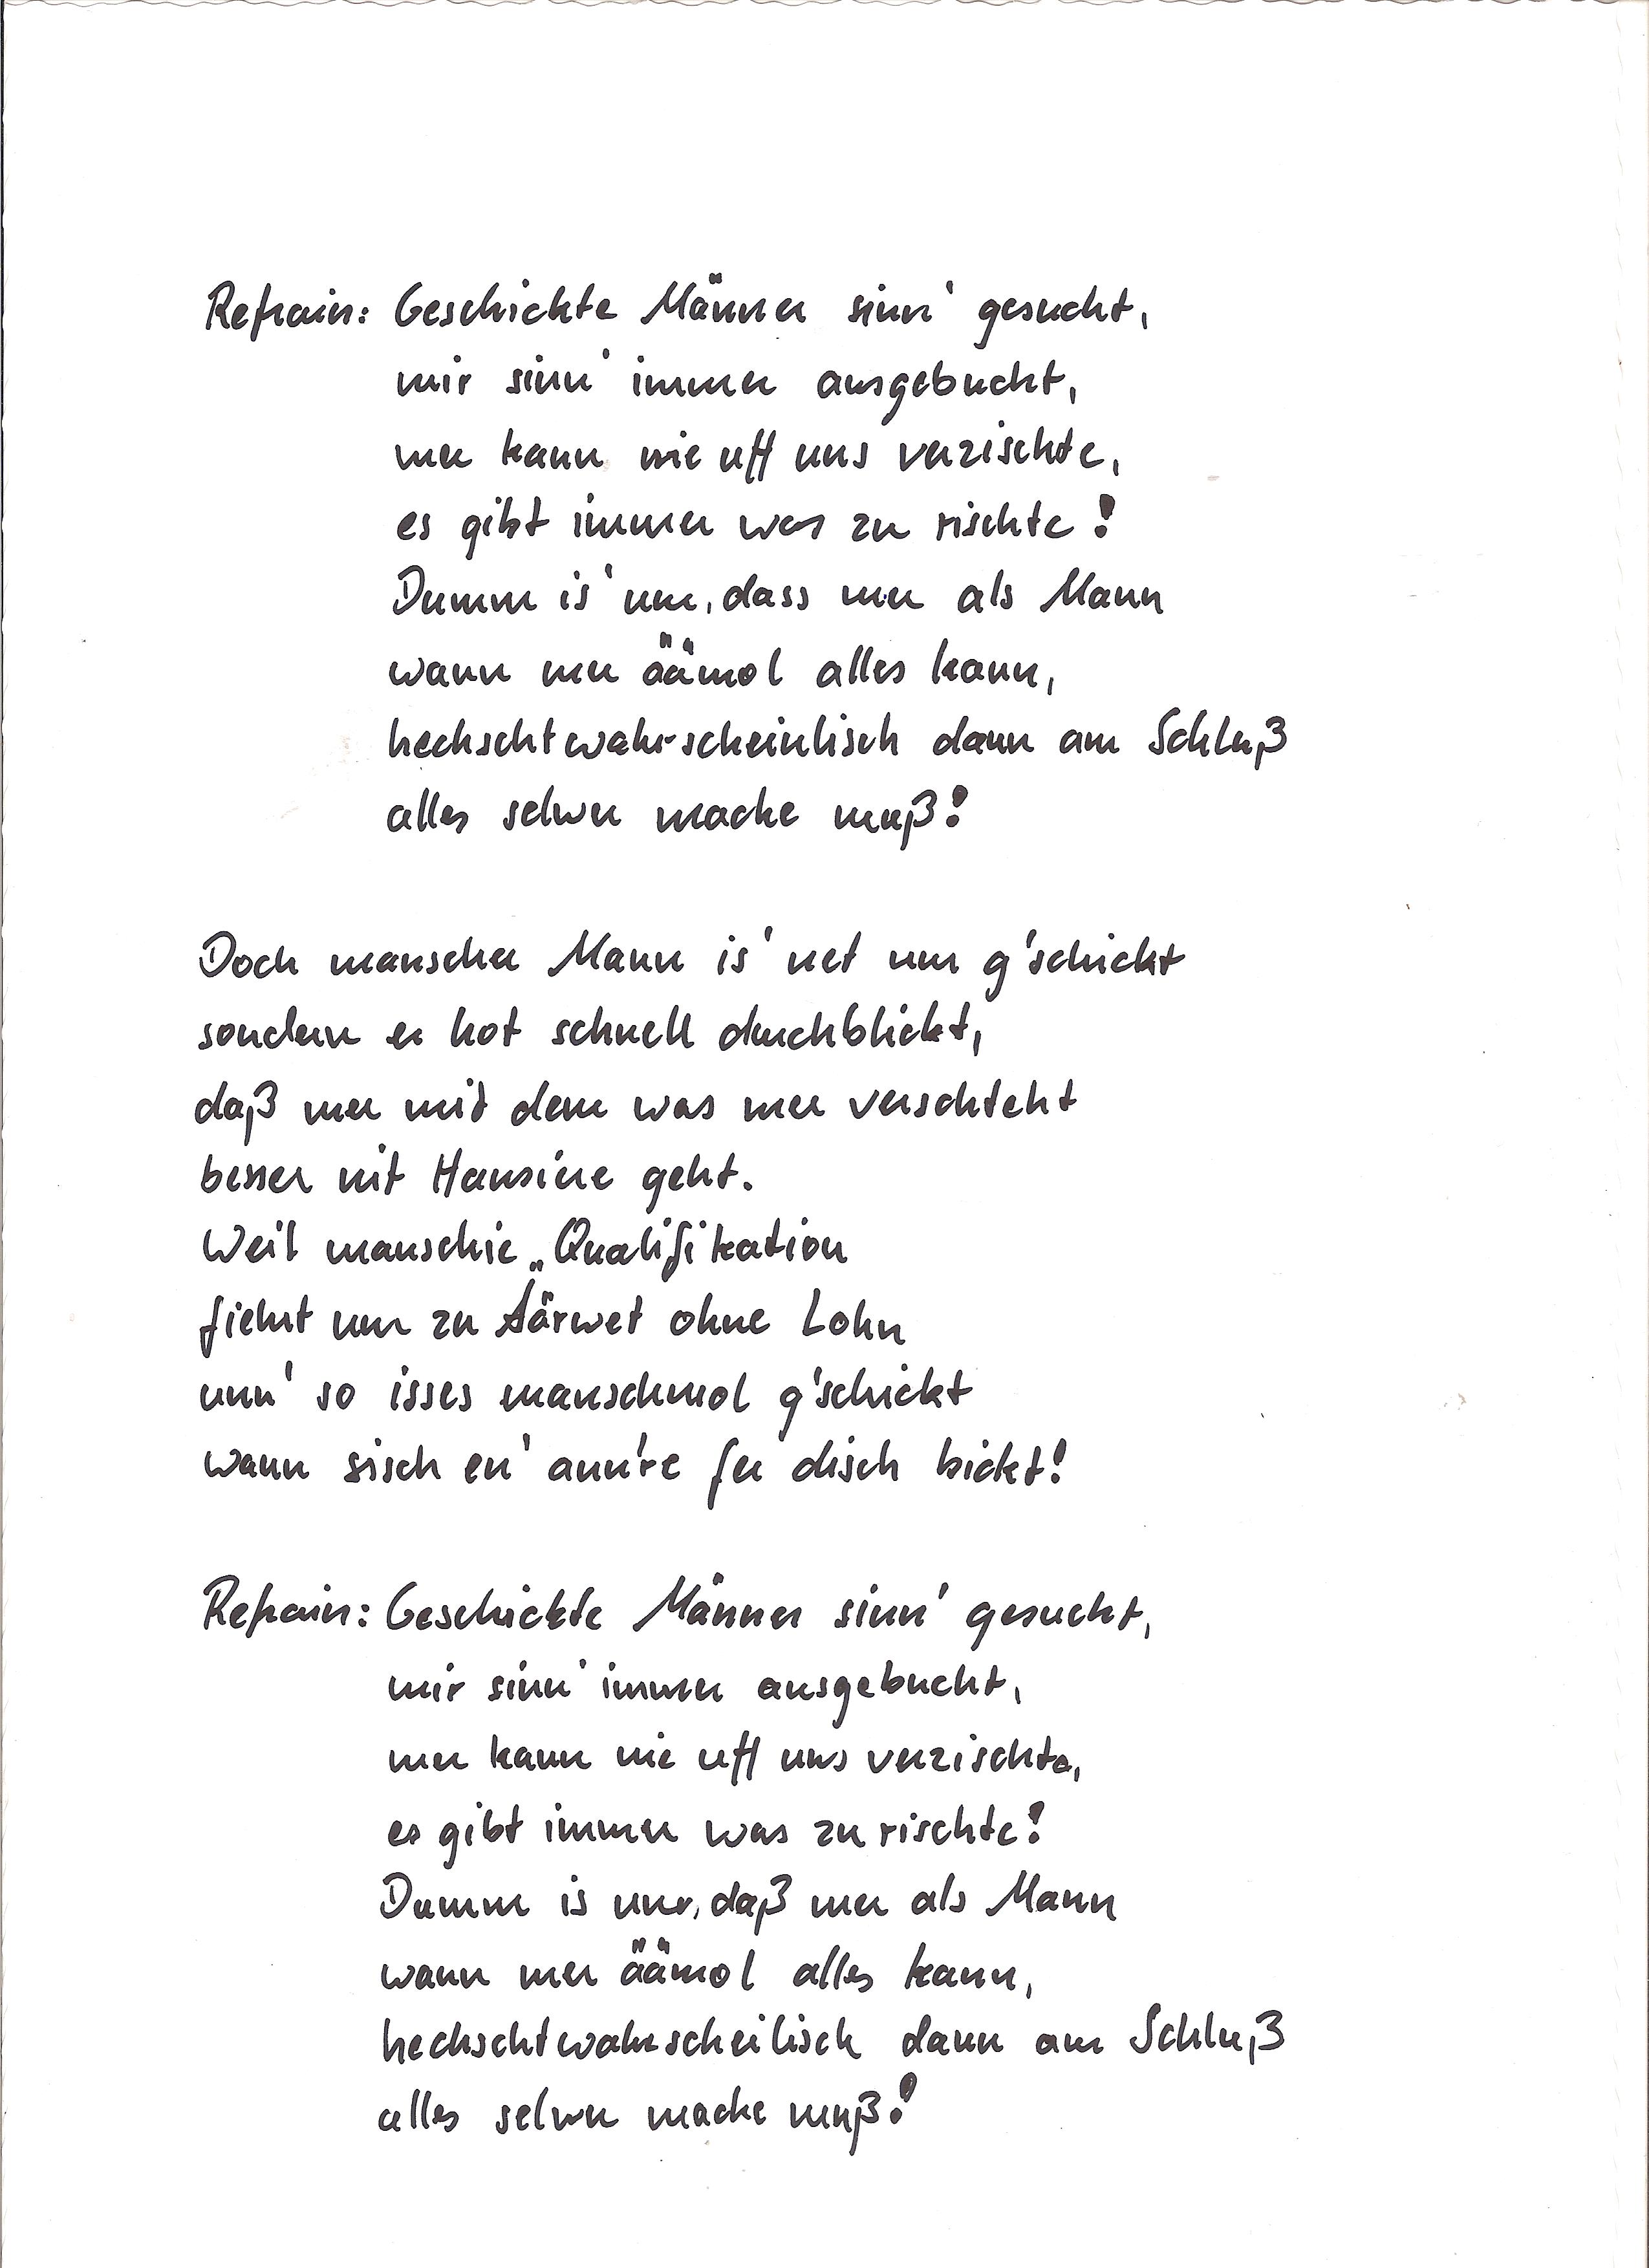 Refrain: Geschickte Männer sinn' gesucht,
mir sinn' immer ausgebucht,
mer kann nie uff uns verzischte,
es gibt immer was zu rischte!
Dumm is' nur, dass mer als Mann
wann mer äämol alles kann,
hechschtwahrscheinlisch dann am Schluß
alles selwer mache muß!
Doch manscher Mann is' net nur g'schickt
sondern er hot schnell durchblickt,
daß mer mit dem was mer verschteht
besser nit Hausiere geht.
Weil manschie „Qualifikation
fiehrt nur zu Äärwet ohne Lohn
unn' so isses manschmol g'schickt
wann sisch en' ann're fer disch bickt!
Refrain: Geschickte Männer sinn' gesucht,
mir sinn' immer ausgebucht,
mer kann nie uff uns verzischte,
es gibt immer was zu rischte!
Dumm is nur, daß mer als Mann
wann mer äämol alles kann,
hechschtwahrscheilisch dann am Schluß
alles selwer mache muß!